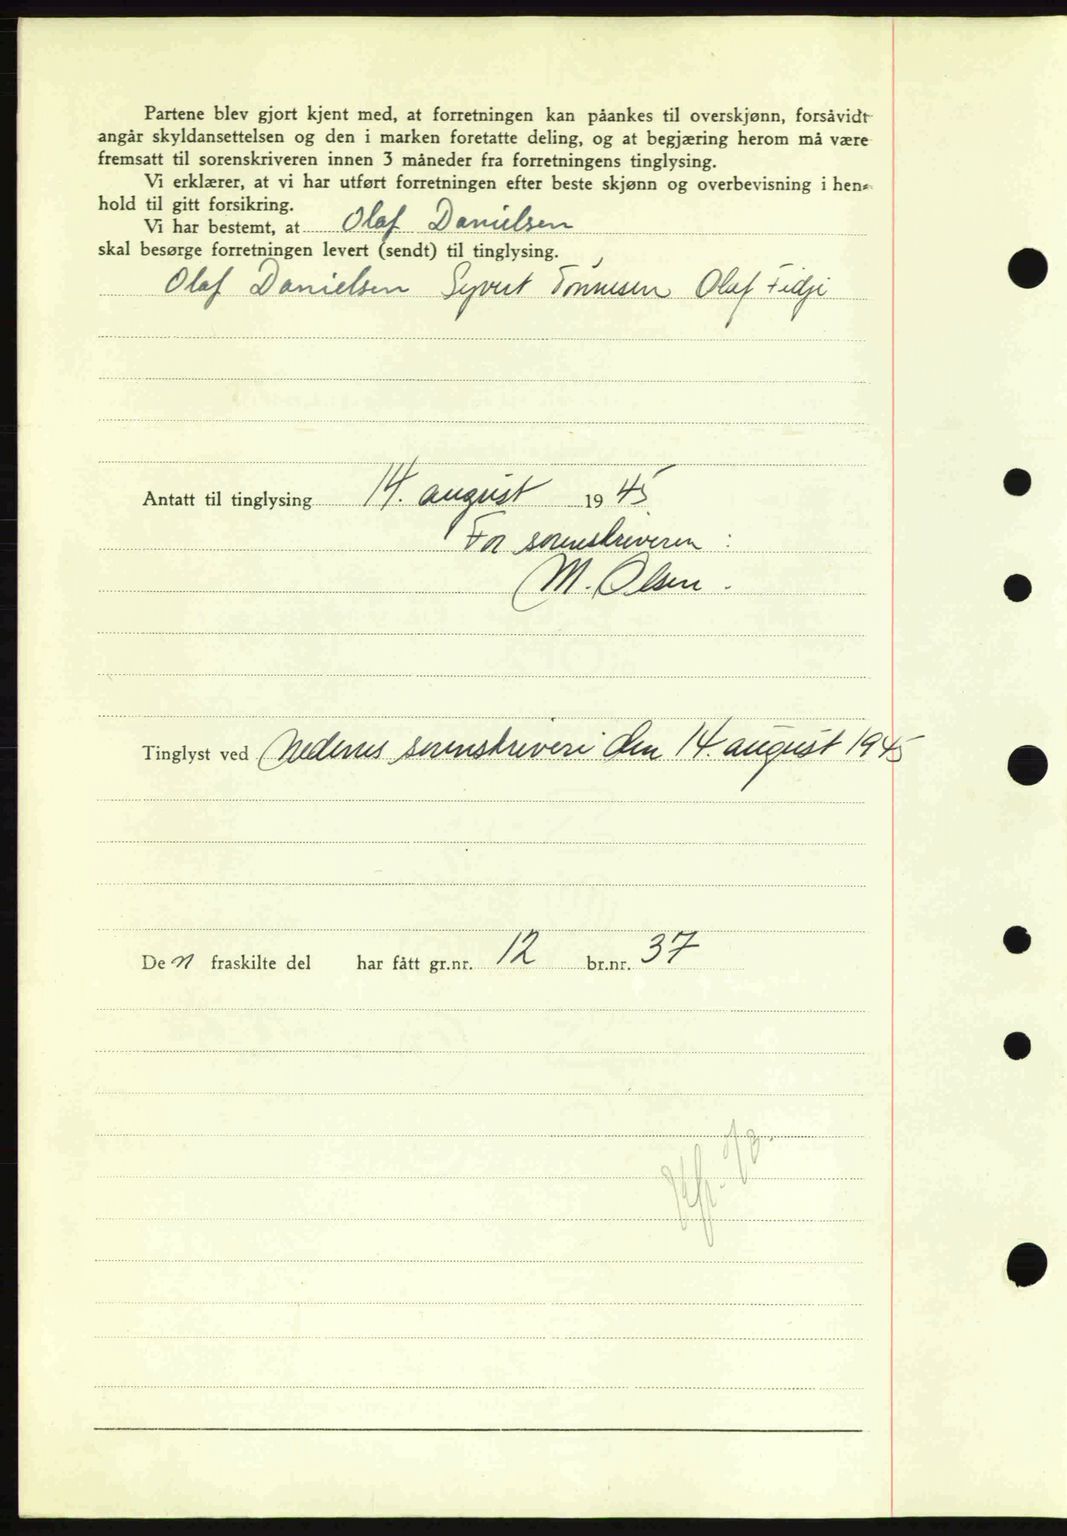 Partene blev gjort kjent med, at forretningen kan påankes til overskjønn, forsåvidt
angår skyldansettelsen og den i marken foretatte deling, og at begjæring herom må være
fremsatt til sorenskriveren innen 3 måneder fra forretningens tinglysing.
Vi erklærer, at vi har utført forretningen efter beste skjønn og overbevisning i hen-
hold til gitt forsikring.
Vi har bestemt, at Olaf Danielsen
skal besørge forretningen levert (sendt) til tinglysing.
Olaf Danielsen Syvert Tønnesen Olaf Fidje
Antatt til tinglysing 14. august 1945
For sorenskriveren:
M. Olsen.
Tinglyst ved Nedenes sorenskriveri den 14. august 1945
Den fraskilte del har fått gr.nr. 12 br.nr. 37